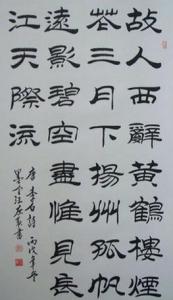 故人西辭黃鶴樓煙
花三月下揚州孤帆
遠影碧空盡惟見長
江天際流
唐李白詩丙戌年